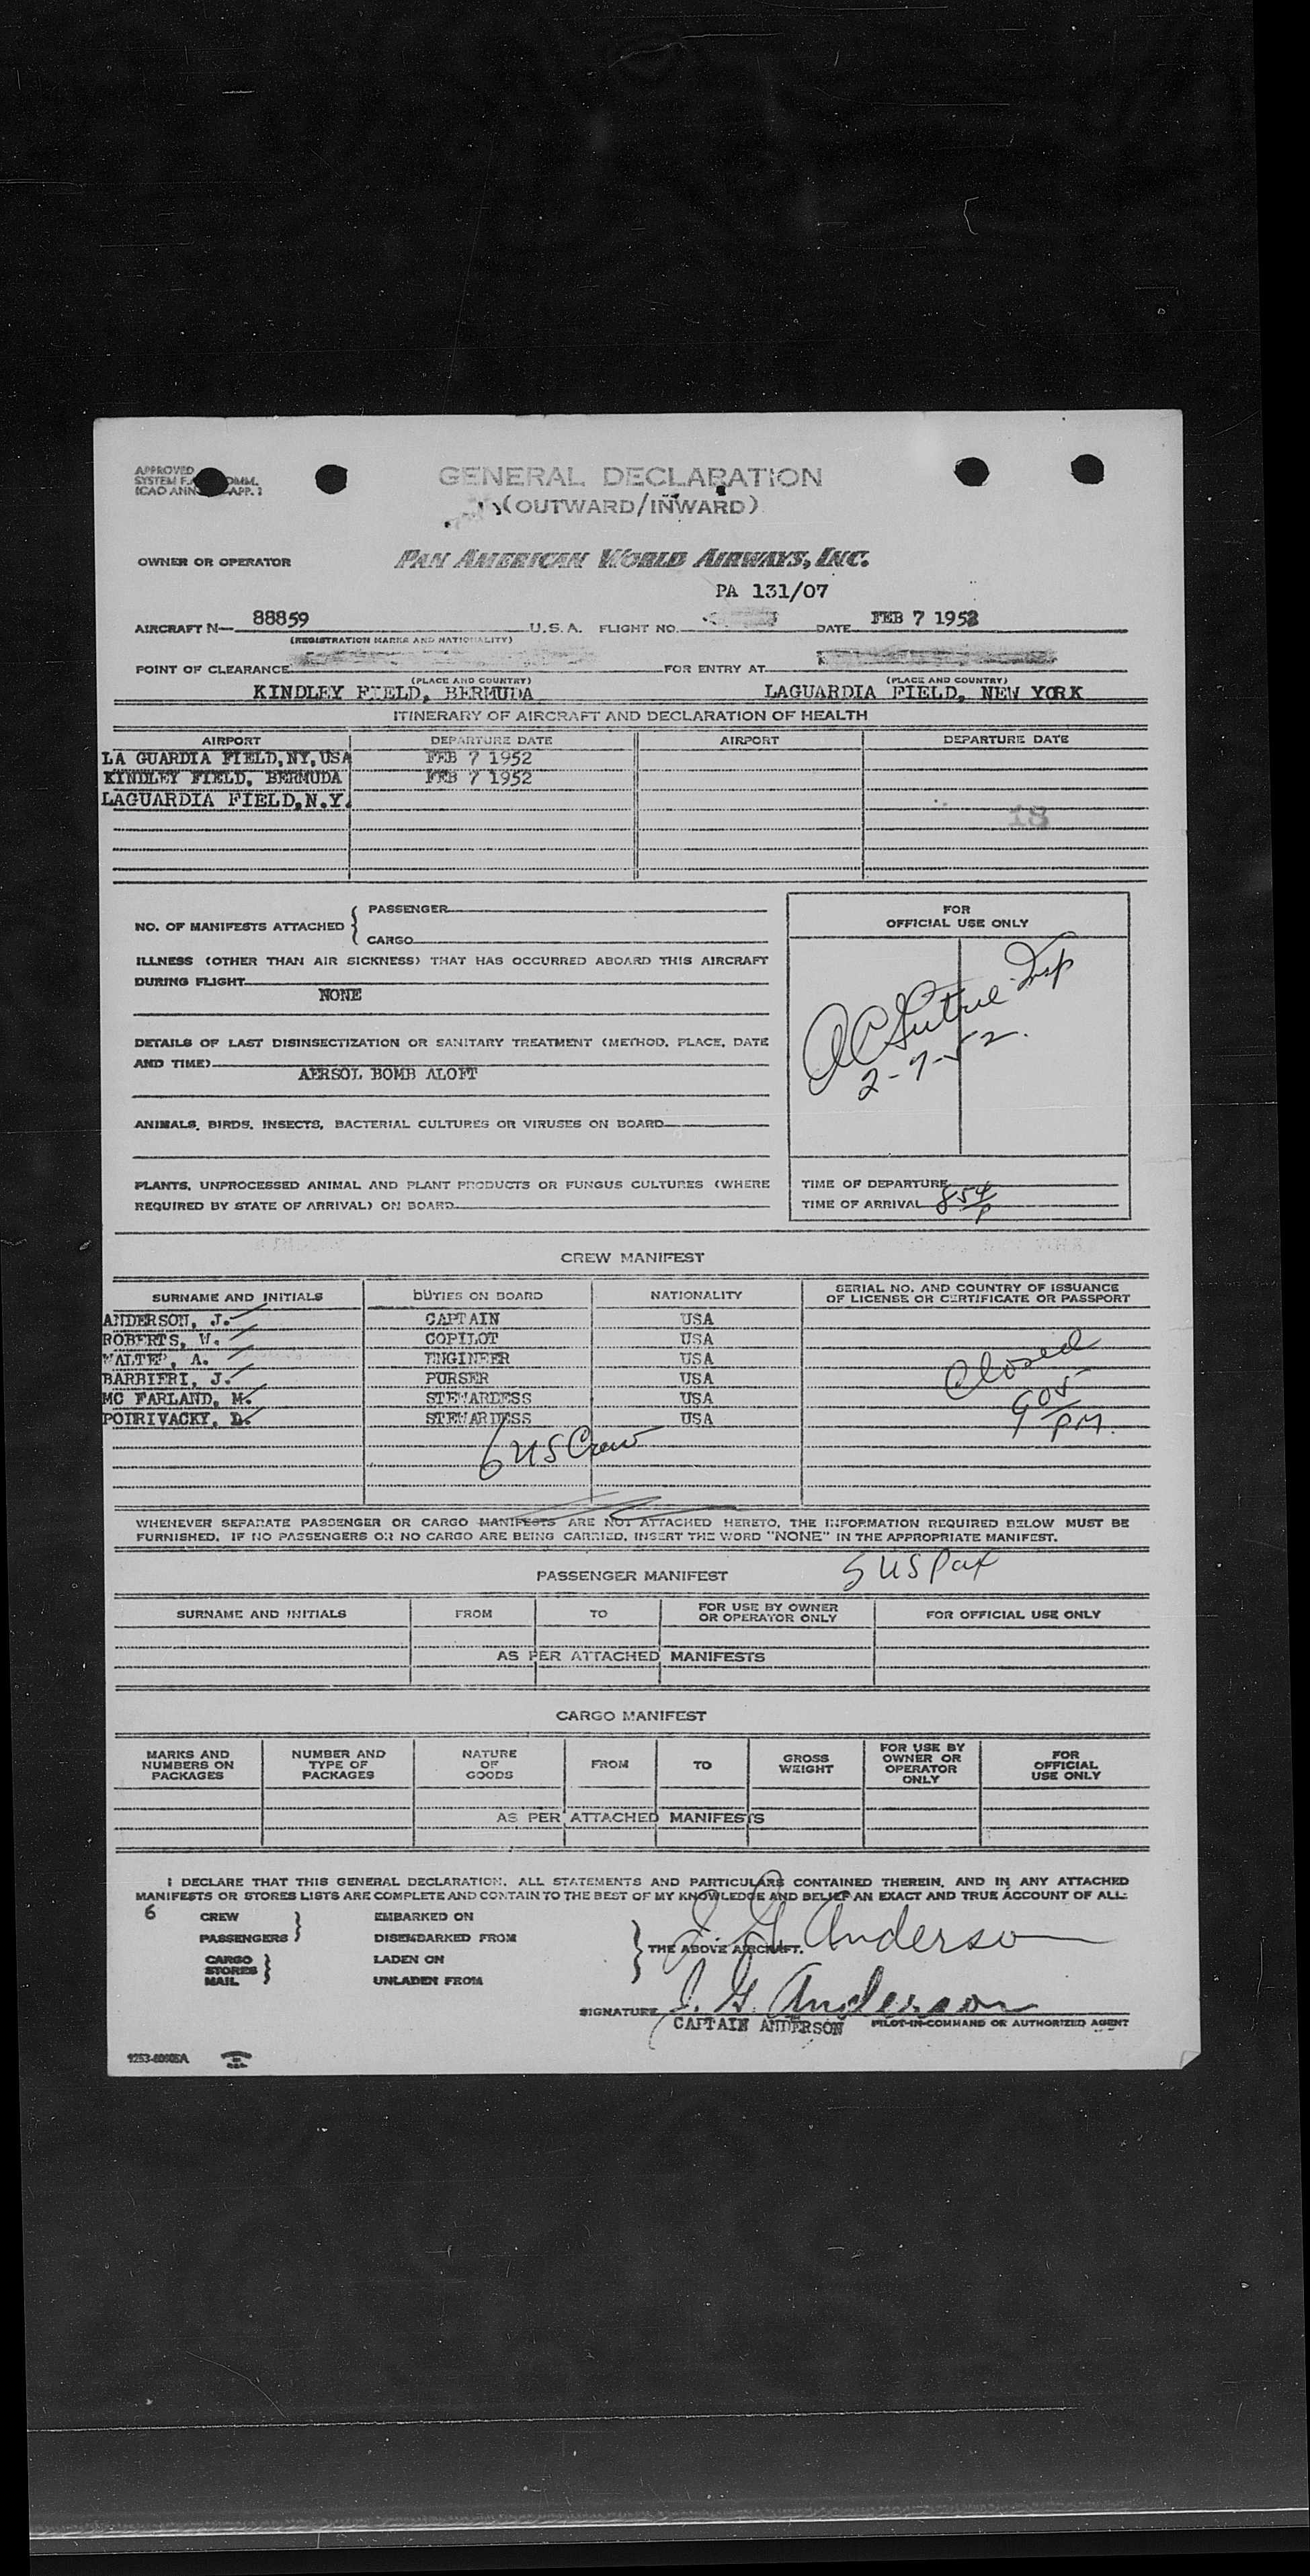 APPROVED
SYSTEM F. COMM.
ICAO ANN APP. 1
GENERAL DECLARATION
(OUTWARD/INWARD)
OWNER OR OPERATOR PAN AMERICAN WORLD AIRWAYS, INC.
PA 131/07
AIRCRAFT N— 88859 U.S.A. FLIGHT NO. DATE FEB 7 1952
(REGISTRATION MARKS AND NATIONALITY)
POINT OF CLEARANCE FOR ENTRY AT
(PLACE AND COUNTRY) (PLACE AND COUNTRY)
KINDLEY FIELD, BERMUDA LAGUARDIA FIELD, NEW YORK
ITINERARY OF AIRCRAFT AND DECLARATION OF HEALTH
AIRPORT DEPARTURE DATE AIRPORT DEPARTURE DATE
LA GUARDIA FIELD,NY,USA FEB 7 1952
KINDLEY FIELD, BERMUDA FEB 7 1952
LAGUARDIA FIELD,N.Y.
18
NO. OF MANIFESTS ATTACHED { PASSENGER
CARGO
FOR
OFFICIAL USE ONLY
ILLNESS (OTHER THAN AIR SICKNESS) THAT HAS OCCURRED ABOARD THIS AIRCRAFT
DURING FLIGHT
NONE
Insp
2-7-52.
DETAILS OF LAST DISINSECTIZATION OR SANITARY TREATMENT (METHOD, PLACE, DATE
AND TIME)
AERSOL BOMB ALOFT
ANIMALS, BIRDS, INSECTS, BACTERIAL CULTURES OR VIRUSES ON BOARD
PLANTS, UNPROCESSED ANIMAL AND PLANT PRODUCTS OR FUNGUS CULTURES (WHERE
REQUIRED BY STATE OF ARRIVAL) ON BOARD
TIME OF DEPARTURE
TIME OF ARRIVAL 854/P
CREW MANIFEST
SURNAME AND INITIALS DUTIES ON BOARD NATIONALITY SERIAL NO. AND COUNTRY OF ISSUANCE
OF LICENSE OR CERTIFICATE OR PASSPORT
ANDERSON, J. CAPTAIN USA
ROBERTS, W. COPILOT USA
WALTER, A. ENGINEER USA
BARBIERI, J. PURSER USA
MC FARLAND, M. STEWARDESS USA
POIRIVACKY, D. STEWARDESS USA
Closed
905
PM.
6 US Crew
WHENEVER SEPARATE PASSENGER OR CARGO MANIFESTS ARE NOT ATTACHED HERETO, THE INFORMATION REQUIRED BELOW MUST BE
FURNISHED. IF NO PASSENGERS OR NO CARGO ARE BEING CARRIED, INSERT THE WORD "NONE" IN THE APPROPRIATE MANIFEST.
5 US Pax
PASSENGER MANIFEST
SURNAME AND INITIALS FROM TO FOR USE BY OWNER
OR OPERATOR ONLY FOR OFFICIAL USE ONLY
AS PER ATTACHED MANIFESTS
CARGO MANIFEST
MARKS AND
NUMBERS ON
PACKAGES
NUMBER AND
TYPE OF
PACKAGES
NATURE
OF
GOODS
FROM
TO
GROSS
WEIGHT
FOR USE BY
OWNER OR
OPERATOR
ONLY
FOR
OFFICIAL
USE ONLY
AS PER ATTACHED MANIFESTS
I DECLARE THAT THIS GENERAL DECLARATION, ALL STATEMENTS AND PARTICULARS CONTAINED THEREIN, AND IN ANY ATTACHED
MANIFESTS OR STORES LISTS ARE COMPLETE AND CONTAIN TO THE BEST OF MY KNOWLEDGE AND BELIEF AN EXACT AND TRUE ACCOUNT OF ALL:
6 CREW EMBARKED ON
PASSENGERS DISEMBARKED FROM
CARGO LADEN ON
STORES
MAIL UNLADEN FROM
THE ABOVE AIRCRAFT.
J. G. Anderson
SIGNATURE J. G. Anderson
CAPTAIN ANDERSON PILOT-IN-COMMAND OR AUTHORIZED AGENT